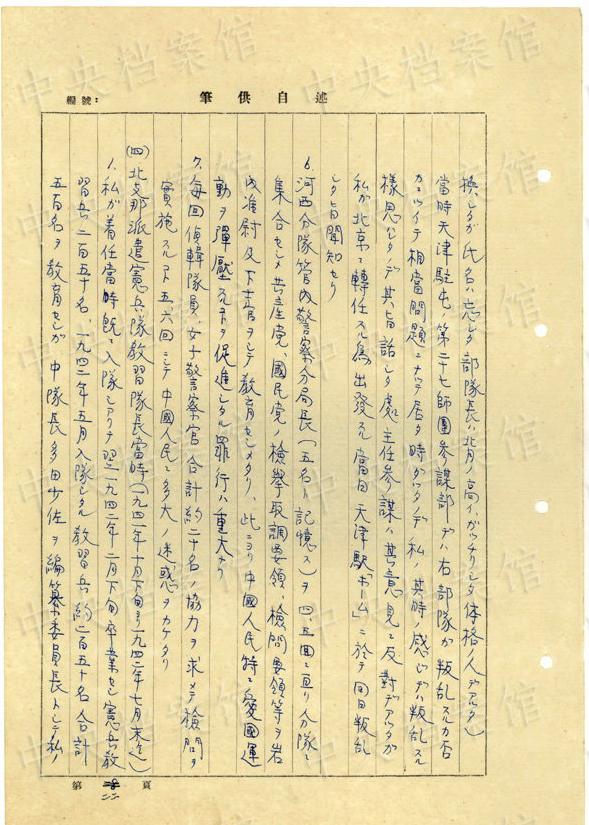 編號：
筆供自述
換シタガ氏名ハ忘レタ部隊長ハ北月ノ高イガッチリシタ体格ノ人デアルタ）
當時天津駐屯ノ第二十七師團参謀部デハ右部隊ガ叛乱スルカ否
カニツイテ相當問題ニナッテ居タ時ダッタノデ私ノ其時ノ感ジデハ叛乱スル
様思ハレタノデ其旨話シタ處主任参謀ハ其意見ニ反對デアッタガ
私ガ北京ニ轉任スル為出發スル當日天津駅「ホーム」ニ於テ同日叛乱
シタ旨聞知セリ
6、河西分隊管内警察分局長（五名ト記憶ス）ヲ四、五回ニ亘リ分隊ニ
集合セシメ共産党、國民党ノ檢挙取調要領、檢問要領等ヲ岩
成准尉及下士官ヲシテ教育セシメタリ、此ニヨリ中國人民特ニ愛國運
動ヲ彈壓スルコトヲ促進シタル罪行ハ重大ナリ
7、毎回偵緝隊員、女子警察官合計約二十名ノ協力ヲ求メテ檢問ヲ
實施スルコト五六回ニシテ中國人民ニ多大ノ迷惑ヲカケタリ
(四)北支那派遣憲兵隊教習隊長當時（一九四一年十月下旬ヨリ一九四二年七月末迄）
1、私ガ着任當時既ニ入隊シアリテ翌一九四二年二月下旬卒業セシ憲兵教
習兵二百五十名、一九四二年五月入隊シタル教習兵約二百五十名合計
五百名ヲ教育セシガ中隊長多田少佐ヲ編纂委員長トシテ私ノ
第 二二 頁
中央档案馆